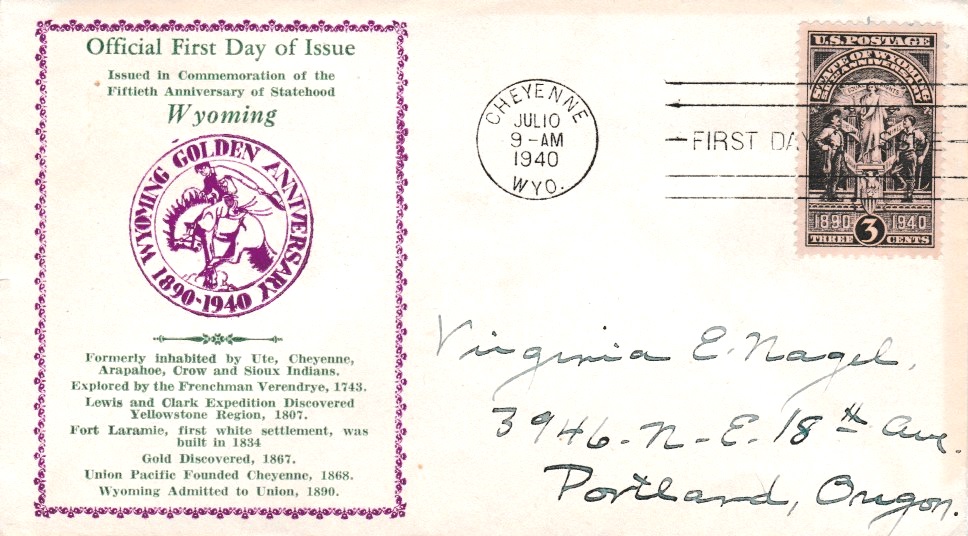 Official First Day of Issue
Issued in Commemoration of the
Fiftieth Anniversary of Statehood
Wyoming
WYOMING GOLDEN ANNIVERSARY
1890-1940
Formerly inhabited by Ute, Cheyenne,
Arapahoe, Crow and Sioux Indians.
Explored by the Frenchman Verendrye, 1743.
Lewis and Clark Expedition Discovered
Yellowstone Region, 1807.
Fort Laramie, first white settlement, was
built in 1834
Gold Discovered, 1867.
Union Pacific Founded Cheyenne, 1868.
Wyoming Admitted to Union, 1890.
CHEYENNE
JUL 10
9-AM
1940
WYO.
FIRST DAY
U.S. POSTAGE
STATE OF WYOMING
50TH ANNIVERSARY
1890 1940
THREE 3 CENTS
Virginia E. Nagel,
3946-N-E-18th Ave.
Portland, Oregon.